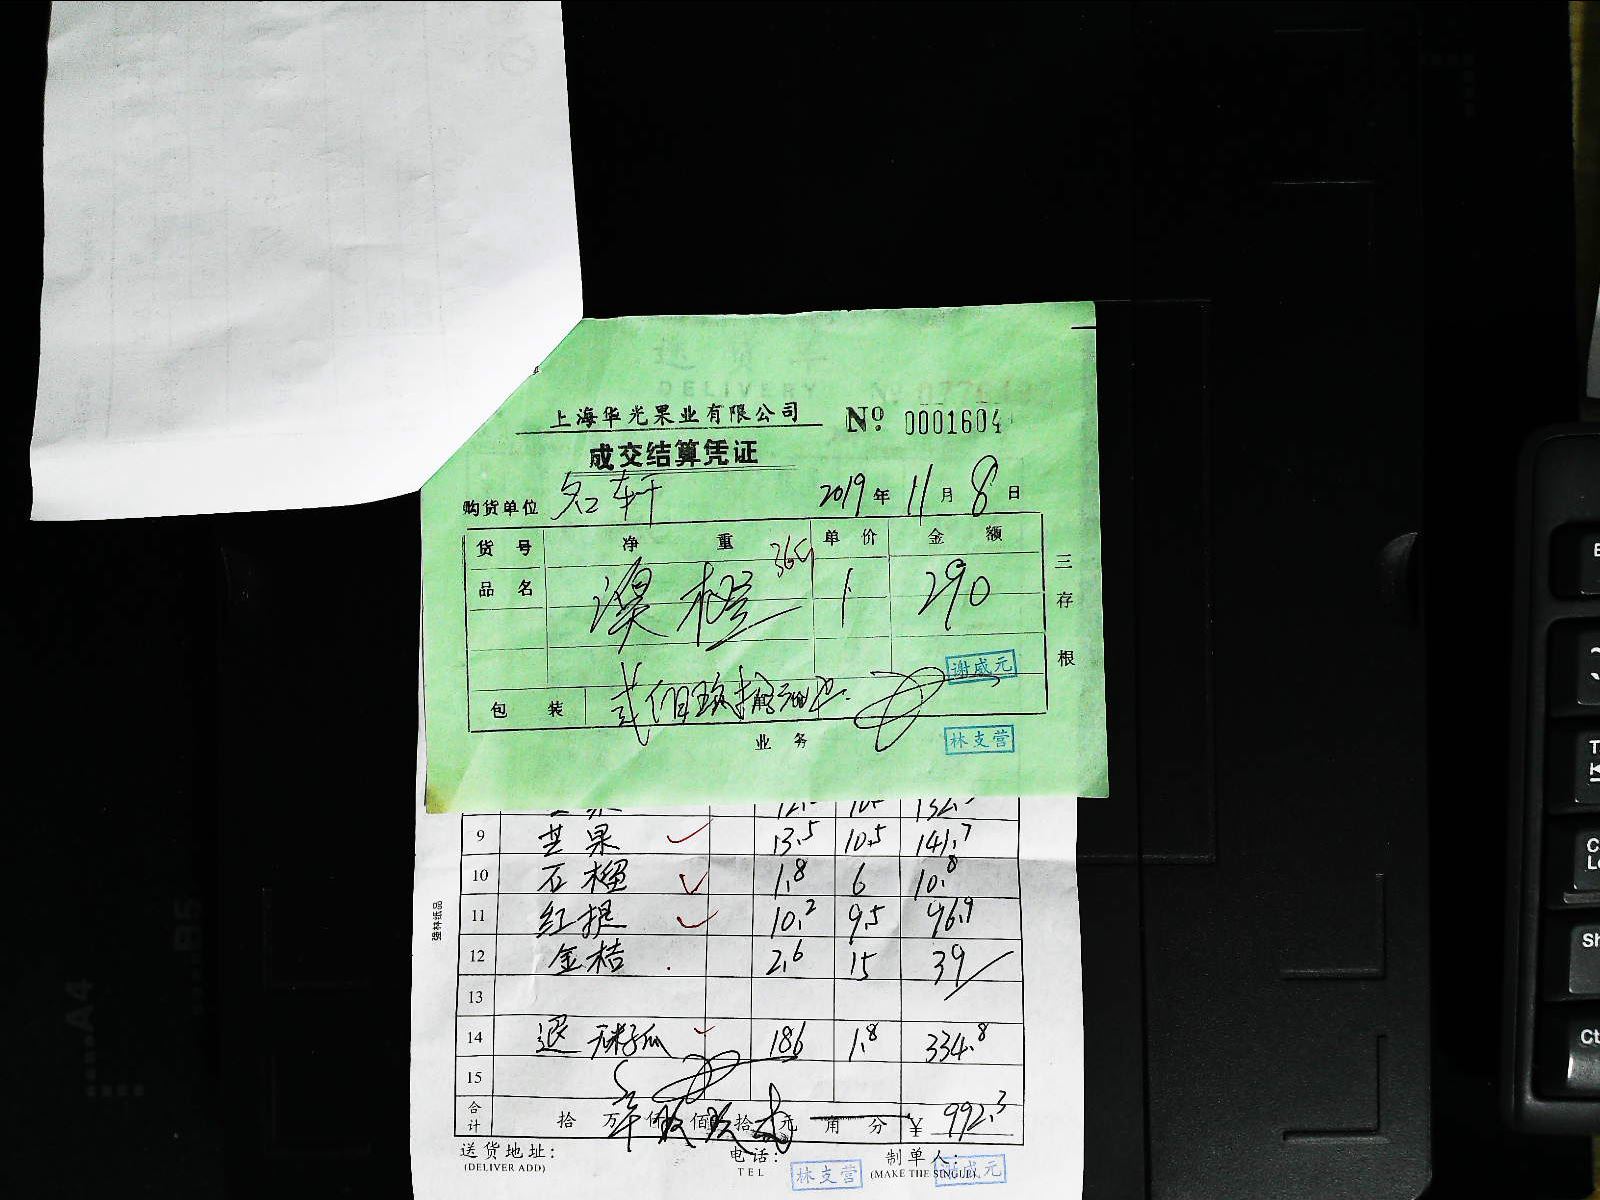 DELIVERY
上海华光果业有限公司 Nº 0001604
成交结算凭证
购货单位 名轩 2019年11月8日
货号 净重 单价 金额
品名 澳橙 36斤 1 290
三存根
谢咸元
包装 贰佰玖拾元
业务 林支营
9 芒果 13.5 10.5 141.7
10 石榴 1.8 6 10.8
11 红提 10.2 9.5 96.9
12 金桔 2.6 15 39
13
14 退 无籽瓜 186 1.8 334.8
15
合计 拾 万 仟 佰 拾 元 角 分 ¥ 992.3
送货地址: 电话: 制单人:
(DELIVER ADD) TEL (MAKE THE SINGLE)
林支营 谢咸元
强林纸品
A4
B5